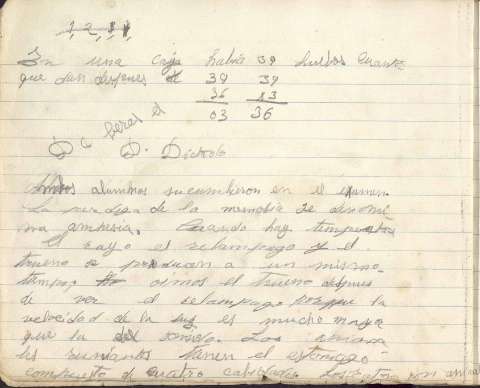 1, 2, 3
En una caja había 39 huebos cuant
que dan despues de 39 39
36 03
03 36
O G heras el D. Dictado
alumnos sucumbieron en el examen.
La perdida de la memoria se denomi
na amnesia. Cuando hay tempestas
el rayo el relampago y el
trueno se producan a un mismo
tiempo oimos el trueno despues
de ver el relampago porque la
velocidad de la luz es mucho mayo
que la del sonido. Los
los rumiantes tienen el estomago
compuesto de cuatro cabidades Los son